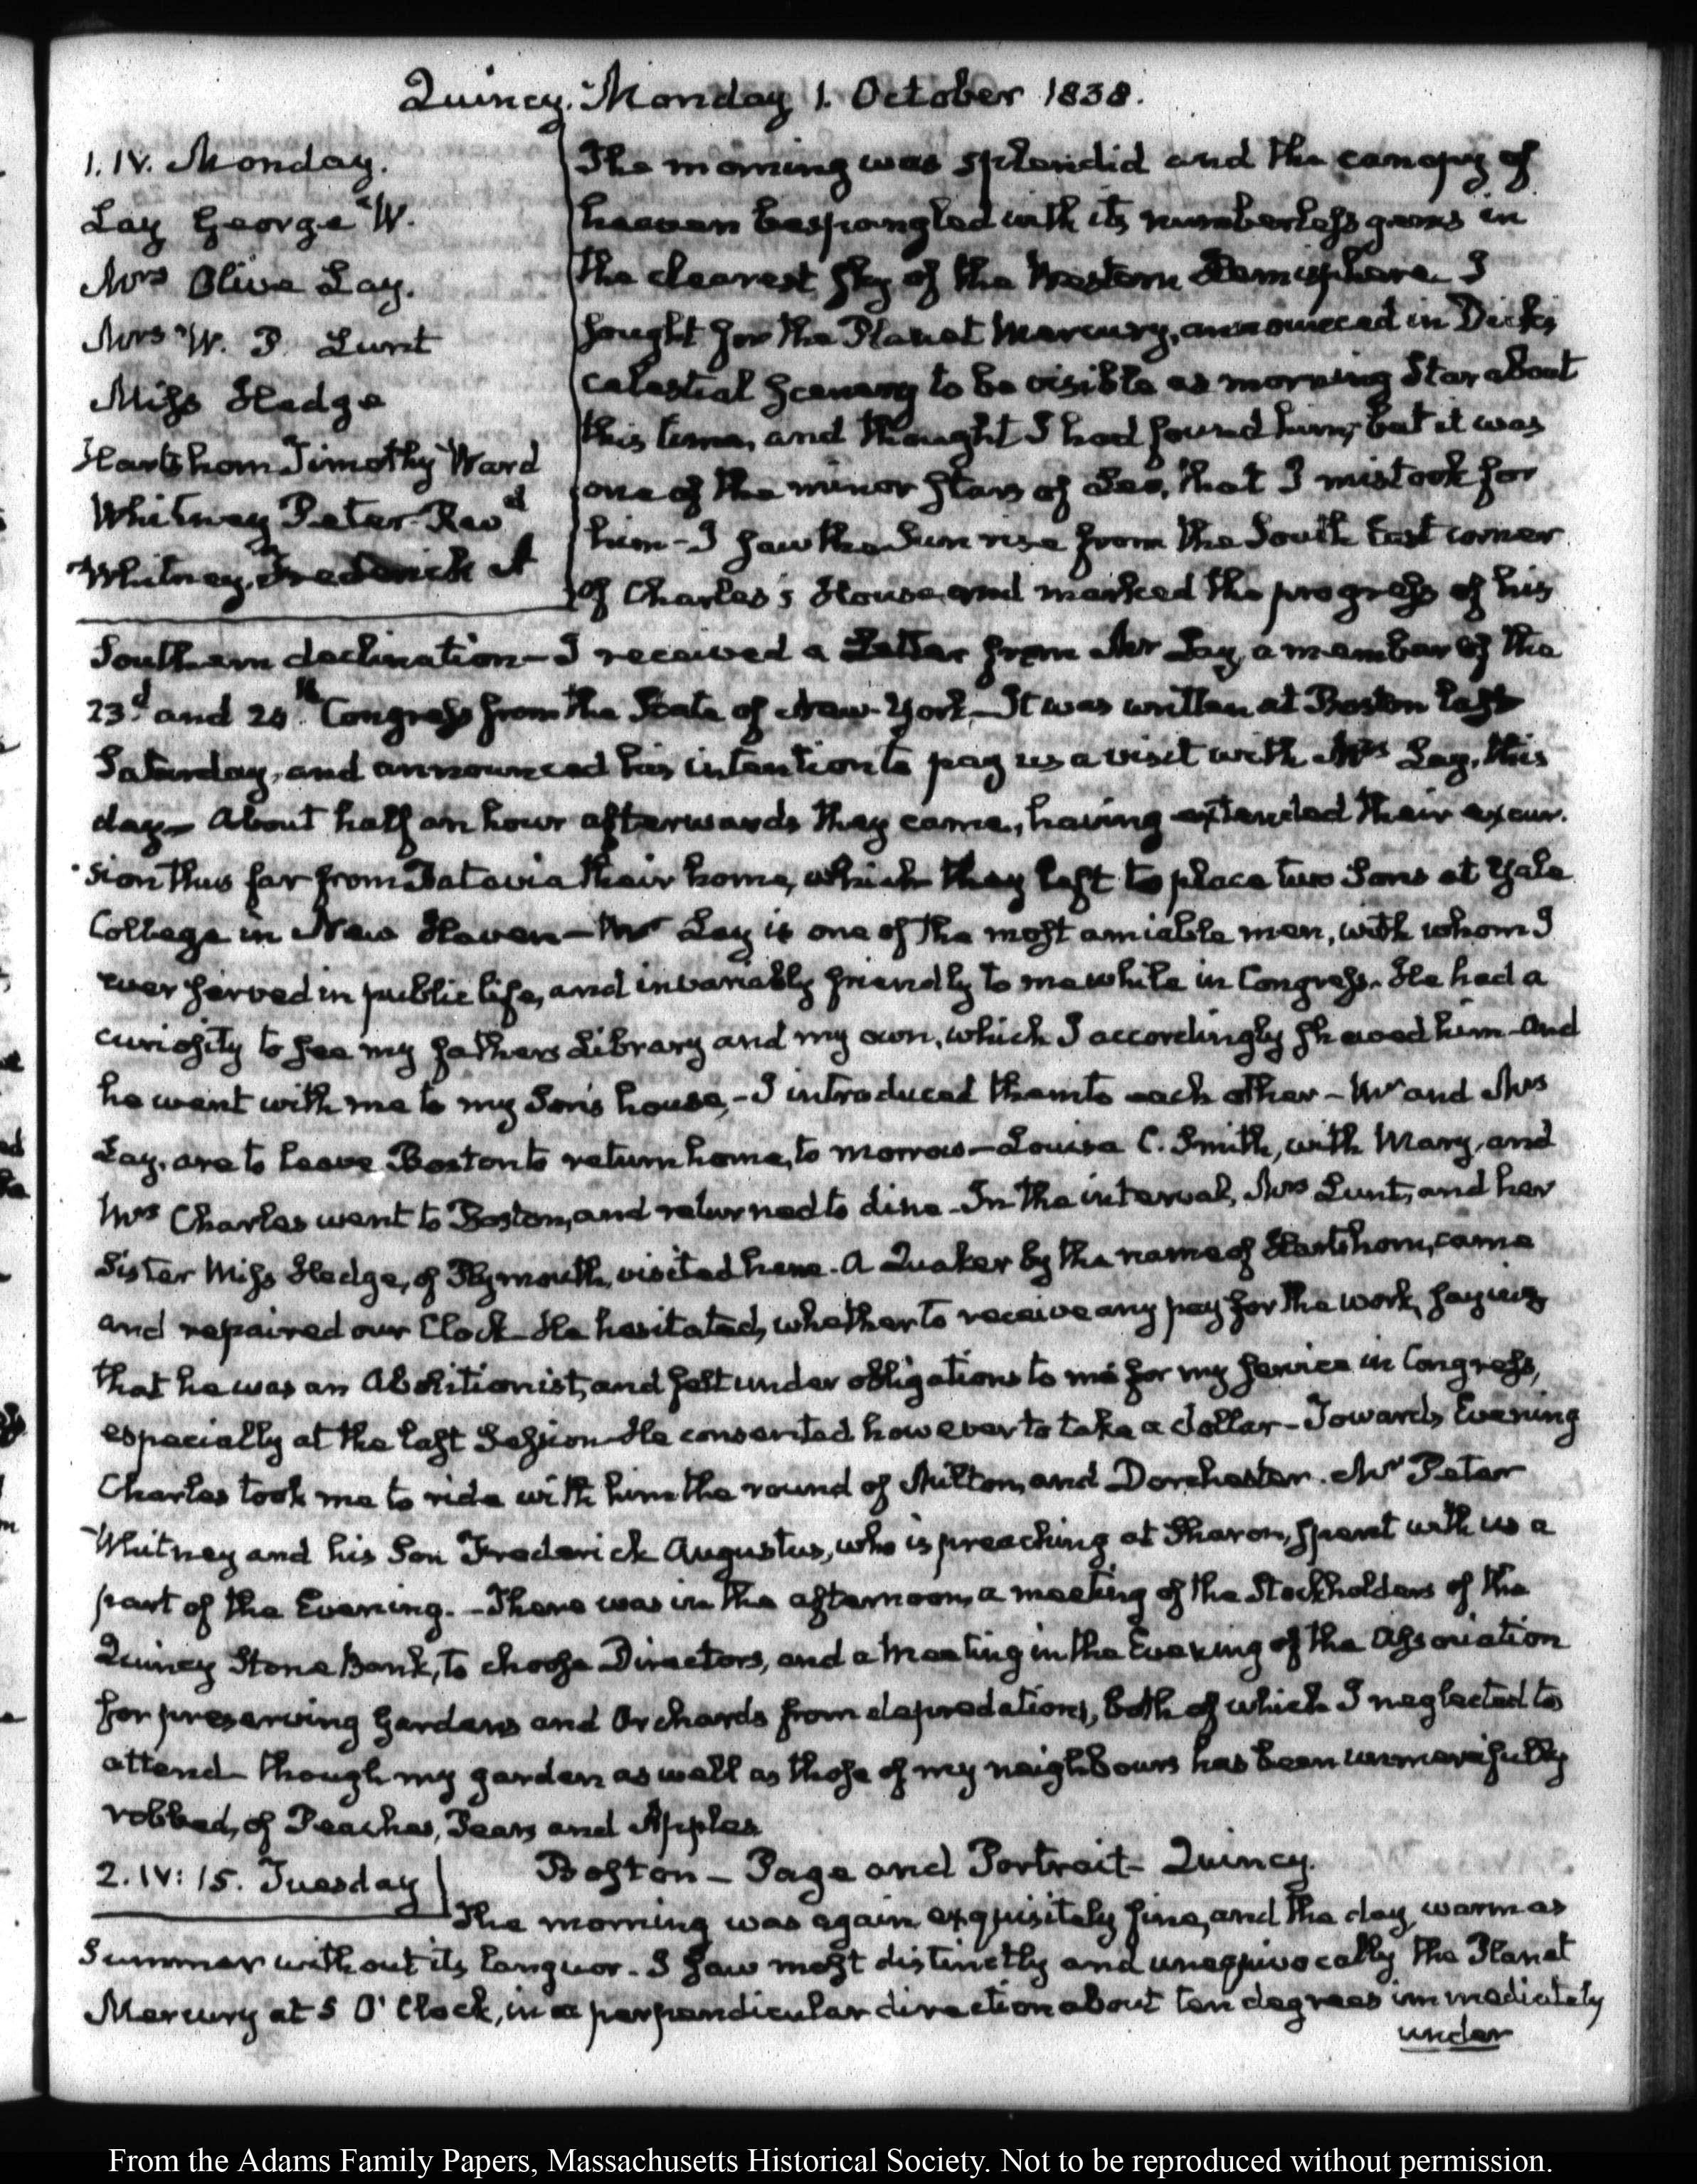 Quincy. Monday 1. October 1838.
1. IV. Monday.
Lay George W.
Mrs Olive Lay.
Mrs W. P. Lunt
Miss Hedge
Hartshorn Timothy Ward
Whitney Peter Revd
Whitney, Frederick A
The morning was splendid and the canopy of
heaven bespangled with its numberless gems in
the clearest sky of the Western Hemisphere. I
sought for the Planet Mercury, announced in Dick's
celestial scenery to be visible as morning Star about
this time, and thought I had found him, but it was
one of the minor stars of Leo, that I mistook for
him - I saw the Sun rise from the South East corner
of Charles's House, and marked the progress of his
Southern declination - I received a Letter from Mr Lay, a member of the
23d and 24th Congress from the State of New-York - It was written at Boston last
Saturday, and announced his intention to pay us a visit with Mrs Lay, this
day - About half an hour afterwards they came, having extended their excur-
sion thus far from Batavia their home, which they left to place two Sons at Yale
College in New Haven - Mr Lay is one of the most amiable men, with whom I
ever served in public life, and invariably friendly to me while in Congress. He had a
curiosity to see my father's Library and my own, which I accordingly shewed him - And
he went with me to my Son's house, - I introduced them to each other - Mr and Mrs
Lay, are to leave Boston to return home, to morrow - Louisa C. Smith, with Mary, and
Mrs Charles went to Boston, and returned to dine - In the interval, Mrs Lunt, and her
Sister Miss Hedge, of Plymouth, visited here. A Quaker by the name of Hartshorn, came
and repaired our Clock - He hesitated, whether to receive any pay for the work, saying
that he was an Abolitionist, and felt under obligations to me for my service in Congress,
especially at the last Session - He consented however to take a dollar - Towards Evening
Charles took me to ride with him the round of Milton, and Dorchester. Mr Peter
Whitney and his Son Frederick Augustus, who is preaching at Sharon, spent with us a
part of the Evening. - There was in the afternoon, a meeting of the Stockholders of the
Quincy Stone Bank, to choose Directors, and a Meeting in the Evening of the Association
for preserving Gardens and Orchards from depredations, both of which I neglected to
attend - though my garden as well as those of my neighbours has been unmercifully
robbed, of Peaches, Pears and Apples
2. IV: 15. Tuesday
Boston - Page and Portrait - Quincy.
The morning was again exquisitely fine, and the day, warm as
Summer without its languor. I saw most distinctly and unequivocally the Planet
Mercury at 5 O'Clock, in a perpendicular direction about ten degrees immediately
under
From the Adams Family Papers, Massachusetts Historical Society. Not to be reproduced without permission.